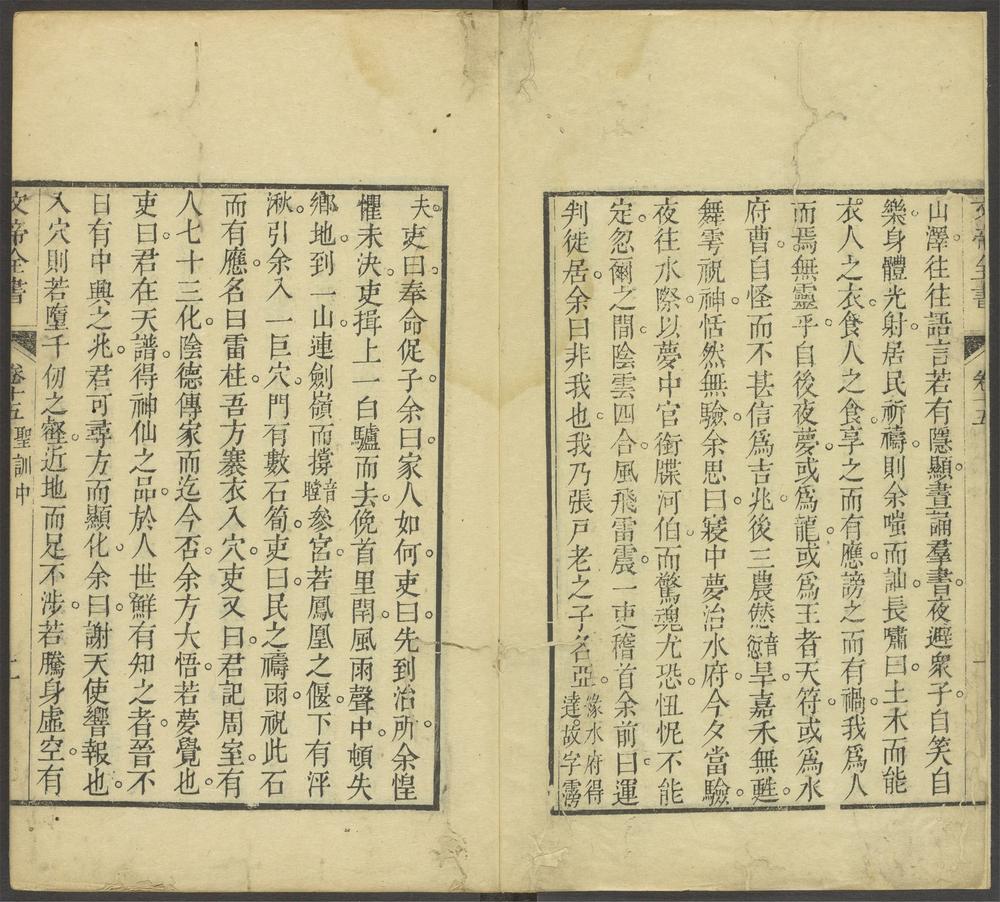 文帝全書 卷十五
山澤往往語言若有隱顯晝誦羣書夜避衆子自笑自
樂身體光射居民祈禱則余嗤而訕長嘯曰土木而能
衣人之衣食人之食享之而有應謗之而有禍我爲人
而焉無靈乎自後夜夢或爲龍或爲王者天符或爲水
府曹自怪而不甚信爲吉兆後三農僽音愆旱嘉禾無甦
舞雩祝神恬然無驗余思曰寢中夢治水府今夕當驗
夜往水際以夢中官銜牒河伯而驚魂尤恐忸怩不能
定忽爾之間陰雲四合風飛雷震一吏稽首余前曰運
判徙居余曰非我也我乃張戸老之子名亞緣水府得達故字霶
夫吏曰奉命促子余曰家人如何吏曰先到治所余惶
懼未決吏揖上一白驢而去俛首里閈風雨聲中頓失
鄉地到一山連劍嶺而撐音瞠參宮若鳳凰之偃下有泙
湫引余入一巨穴門有數石筍吏曰民之禱雨祝此石
而有應名曰雷柱吾方褰衣入穴吏又曰君記周室有
人七十三化陰德傳家而迄今否余方大悟若夢覺也
吏曰君在天譜得神仙之品於人世鮮有知之者晉不
日有中興之兆君可尋方而顯化余曰謝天使響報也
入穴則若墮千仞之壑近地而足不渉若騰身虛空有
文帝全書 卷十五聖訓中